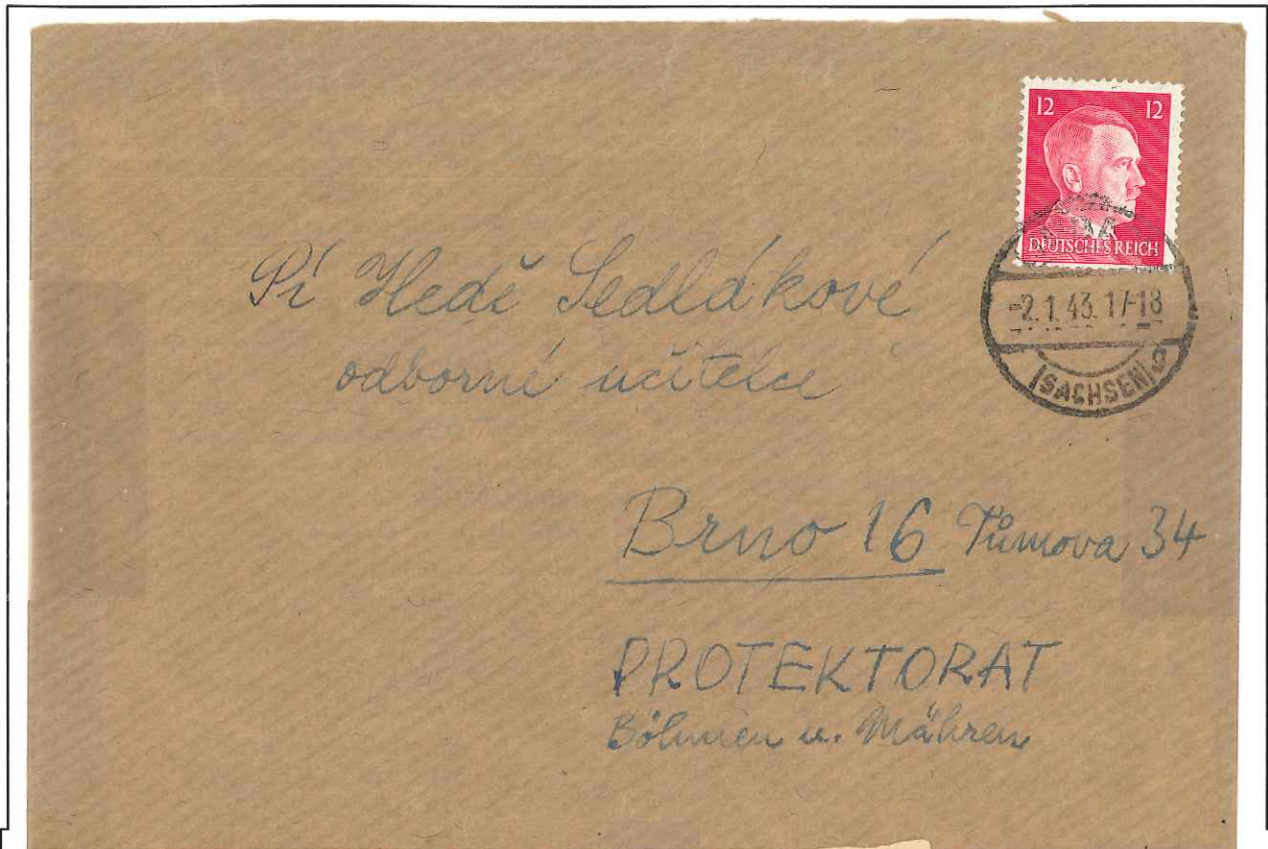 12 12
DEUTSCHES REICH
-2.1.43.17-18
(SACHSEN)
Pí Hedě Sedlákové
odborné učitelce
Brno 16 Tůmova 34
PROTEKTORAT
Böhmen u. Mähren